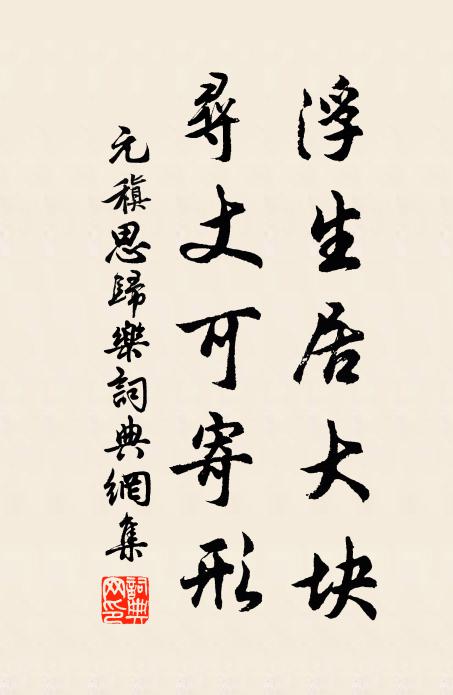 浮生居大块
尋丈可寄形
元稹思歸樂詞典網集
詞典網印